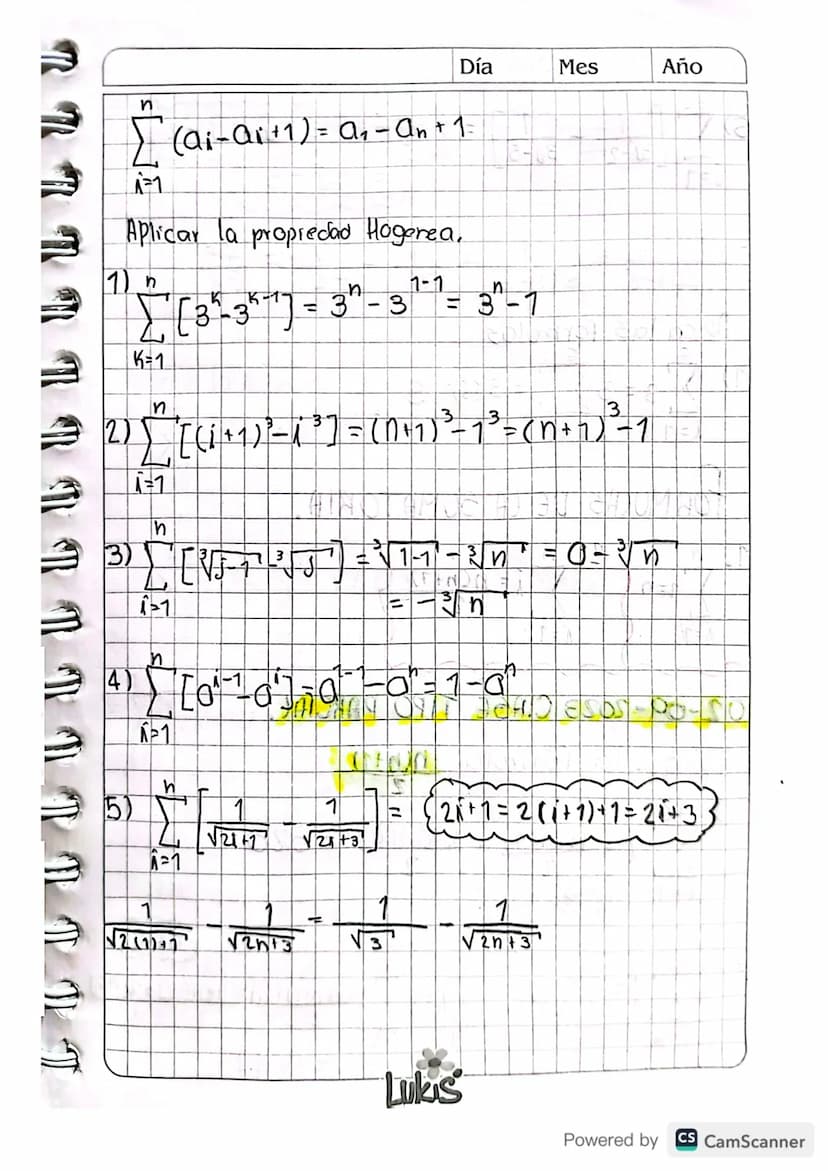 Día Mes Año
n
∑ (ai - ai+1) = a₁ - aₙ + 1
i=1
Aplicar la propiedad Hogerea.
1) n
∑ [3ᵏ - 3ᵏ⁻¹] = 3ⁿ - 3¹⁻¹ = 3ⁿ - 1
K=1
n
2) ∑ [(i+1)³ - i³] = (n+1)³ - 1³ = (n+1)³ - 1
i=1
n
3) ∑ [∛(j-1) - ∛j] = ∛(1-1) - ∛n = 0 - ∛n
i=1
= - ∛n
n
4) ∑ [aⁱ⁻¹ - aⁱ] = a¹⁻¹ - aⁿ = 1 - aⁿ
i=1
n
5) ∑ [1/√(2i+1) - 1/√(2i+3)] = (2i+1 = 2(i+1)+1 = 2i+3)
i=1
1/√(2(1)+1) - 1/√(2n+3) = 1/√3 - 1/√(2n+3)
Lukis
Powered by CS CamScanner